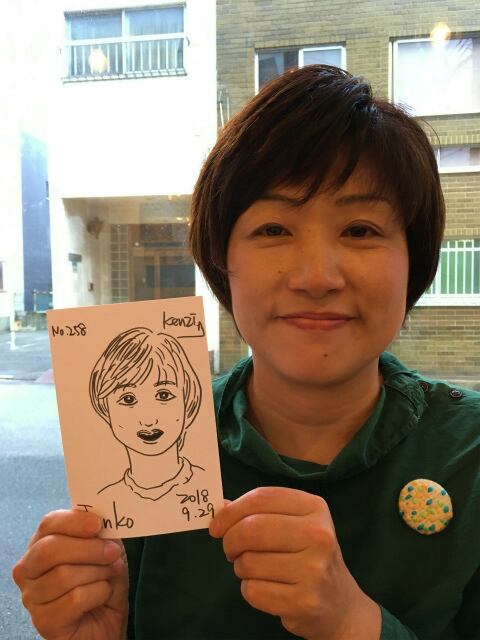 No.258
kenzi
Junko
2018
9.29